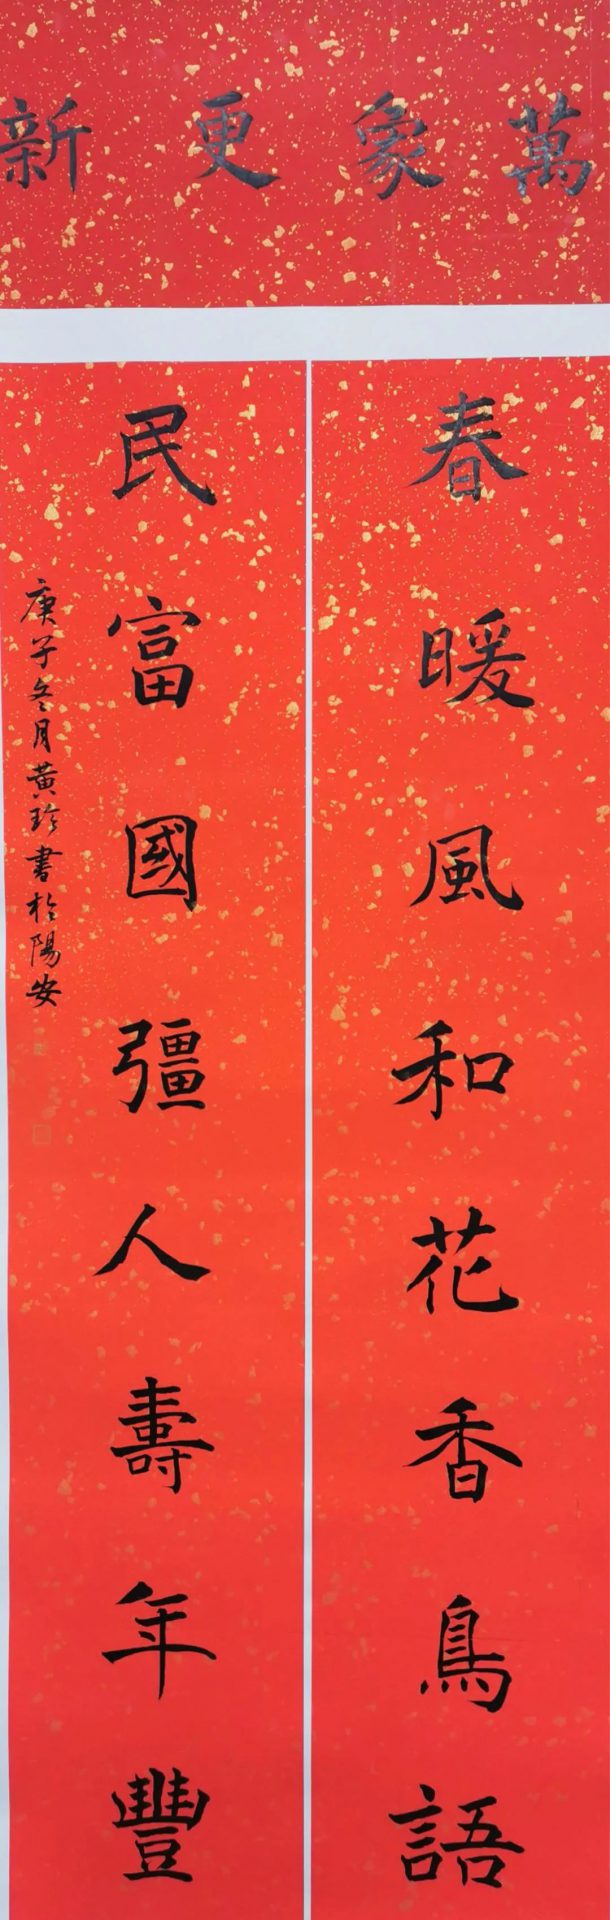 萬象更新
春暖風和花香鳥語
民富國彊人壽年豐
庚子冬月黄珍書於陽安